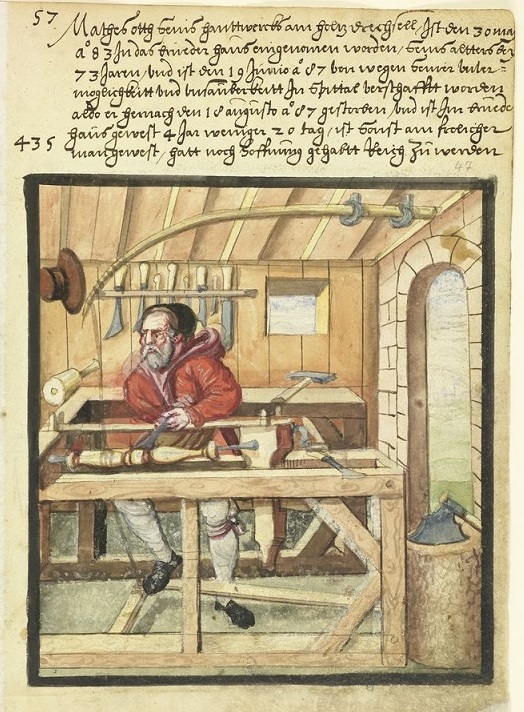 57 Mathes Otth seins hanttwercks ain holtz drechsell, Ist den 30 may
a° 83 In das brueder haus eingenomen worden, seins altters der
73 Jaren, vnd ist den 19 Junio a° 87 von wegen seiner unver=
möglichkeitt vnd vnsauberkeitt In Spittal verschafftt worden
aldo er hernach den 18 augusto a° 87 gestorben, vnd ist Im bruede
haus gewest 4 Jar weniger 20 tag, ist sonst ain frölicher
435 man gewest, hatt noch hoffnung gehabtt Reich zu werden
47